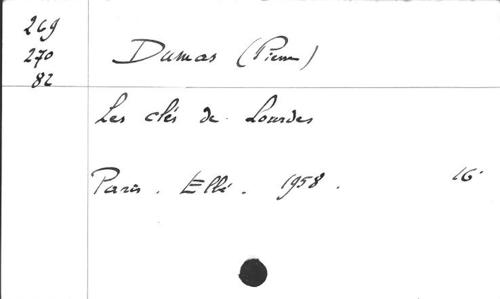 269
270
82
Dumas (Pierre)
Les clés de Lourdes
Paris. Ellé. 1958. 16°